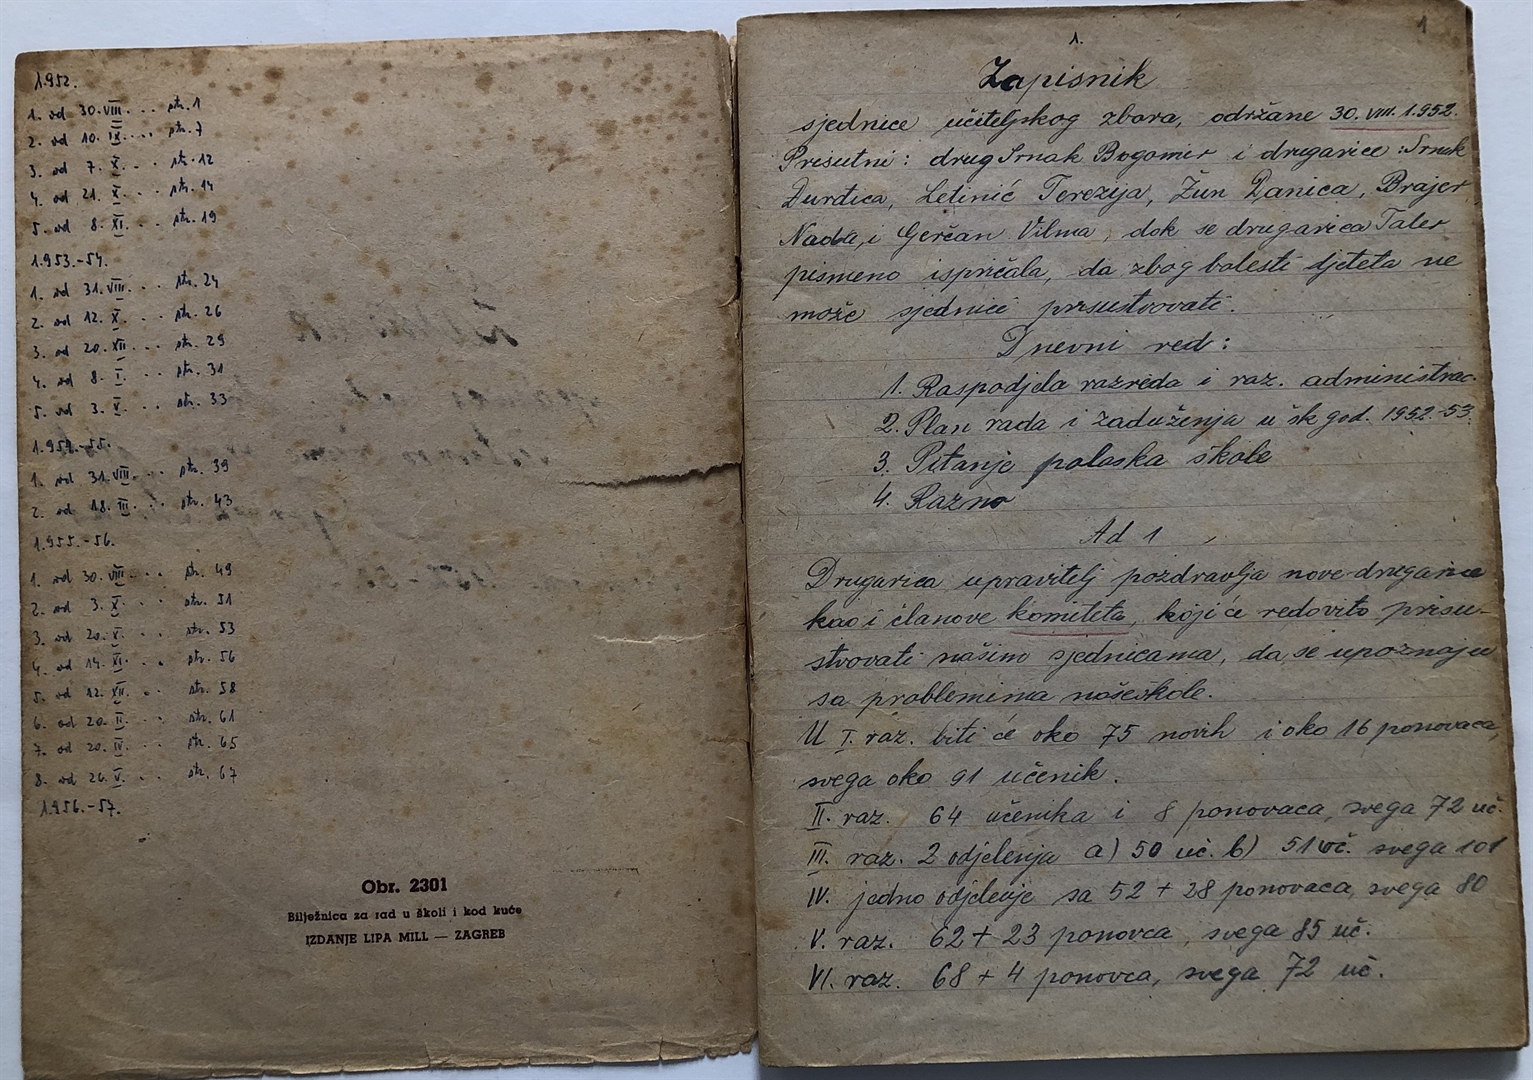 1.952.
1. od 30. VIII. . . str. 1
2. od 10. IX. . . . str. 7
3. od 7. X. . . . str. 12
4. od 21. X. . . . str. 14
5. od 8. XI. . . str. 19
1.953.-54.
1. od 31. VIII. . . . str. 24
2. od 12. X. . . . str. 26
3. od 20. XII . . . str. 29
4. od 8. I. . . . str. 31
5. od 3. V. . . . str. 33
1.954.-55.
1. od 31. VIII. . . str. 39
2. od 18. III. . . str. 43
1.955.-56.
1. od 30. VIII. . . str. 49
2. od 3. X. . . str. 51
3. od 20. X. . . str. 53
4. od 14. XI. . . str. 56
5. od 12. XII. . . str. 58
6. od 20. II. . . str. 61
7. od 20. IV. . . str. 65
8. od 26. V. . . str. 67
1.956.-57.
Obr. 2301
Bilježnica za rad u školi i kod kuće
IZDANJE LIPA MILL — ZAGREB
1
1.
Zapisnik
sjednice učiteljskog zbora, održane 30. VIII. 1.952.
Prisutni: drug Srnak Bogomir i drugarice: Srnak
Đurđica, Letinić Terezija, Žun Danica, Brajer
Nada, i Gerčan Vilma, dok se drugarica Taler
pismeno ispričala, da zbog bolesti djeteta ne
može sjednici prisustvovati.
Dnevni red:
1. Raspodjela razreda i raz. administrac.
2. Plan rada i zaduženja u šk god. 1952-53.
3. Pitanje polaska škole
4. Razno
Ad 1
Drugarica upravitelj pozdravlja nove drugarice
kao i članove komiteta, koji će redovito prisu-
stvovati našim sjednicama, da se upoznaju
sa problemima naše škole.
U I. raz. biti će oko 75 novih i oko 16 ponovaca,
svega oko 91 učenik.
II. raz. 64 učenika i 8 ponovaca, svega 72 uč.
III. raz. 2 odjelenja a) 50 uč. b) 51 uč. svega 101
IV. jedno odjelenje sa 52 + 28 ponovaca, svega 80
V. raz. 62 + 23 ponovca, svega 85 uč.
VI. raz. 68 + 4 ponovca, svega 72 uč.